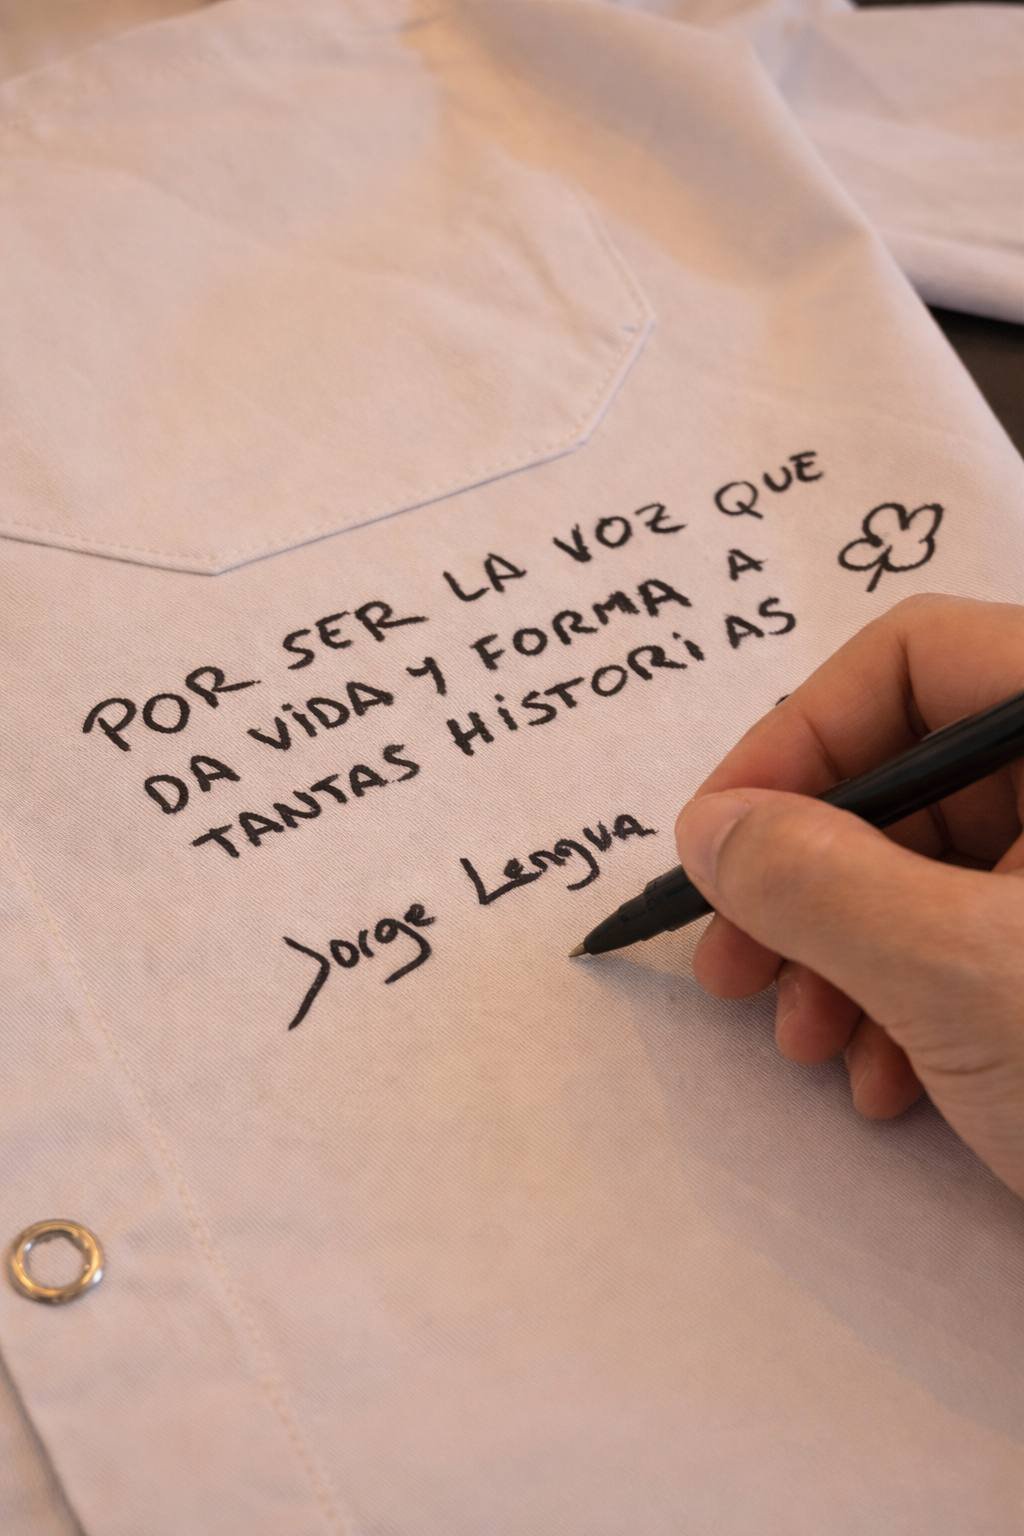 POR SER LA VOZ QUE
DA VIDA Y FORMA A
TANTAS HISTORIAS
Jorge Lengua